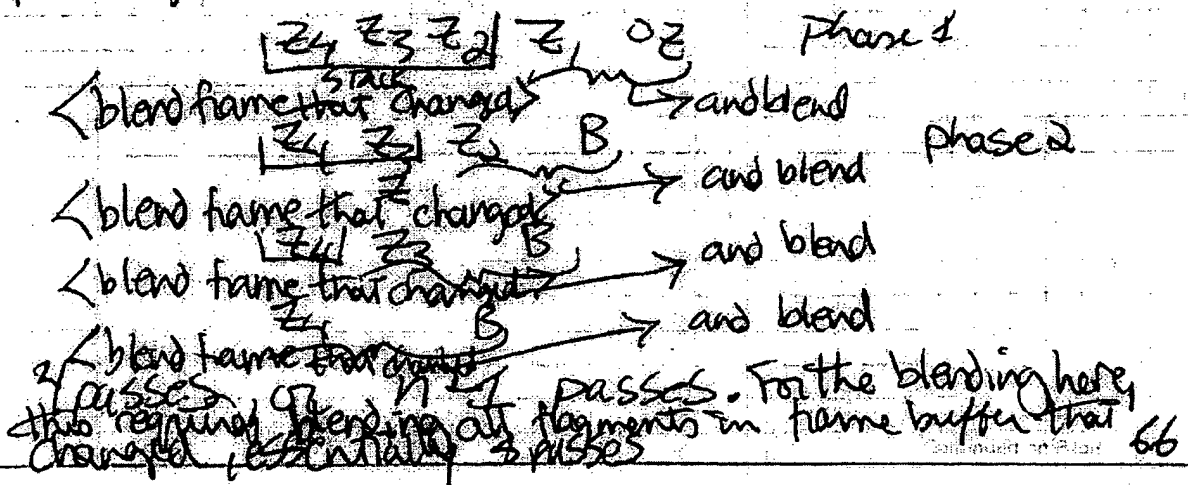 Z4 Z3 Z2 Z1 OZ Phase 1
stack
<blend frame that changed> and blend
Z4 Z3 Z2 B Phase 2
<blend frame that changed> and blend
Z4 Z3 B
<blend frame that changed> and blend
Z4 B
<blend frame that changed and blend
passes, or n-1 passes. For the blending here,
this requires blending all fragments in frame buffer that
changed, essentially passes 66